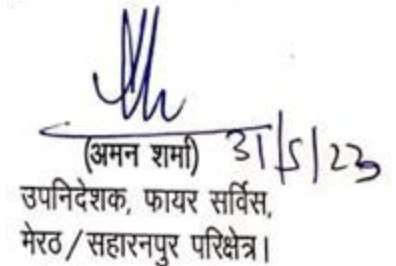 (अमन शर्मा) 31/5/23
उपनिदेशक, फायर सर्विस,
मेरठ/सहारनपुर परिक्षेत्र।